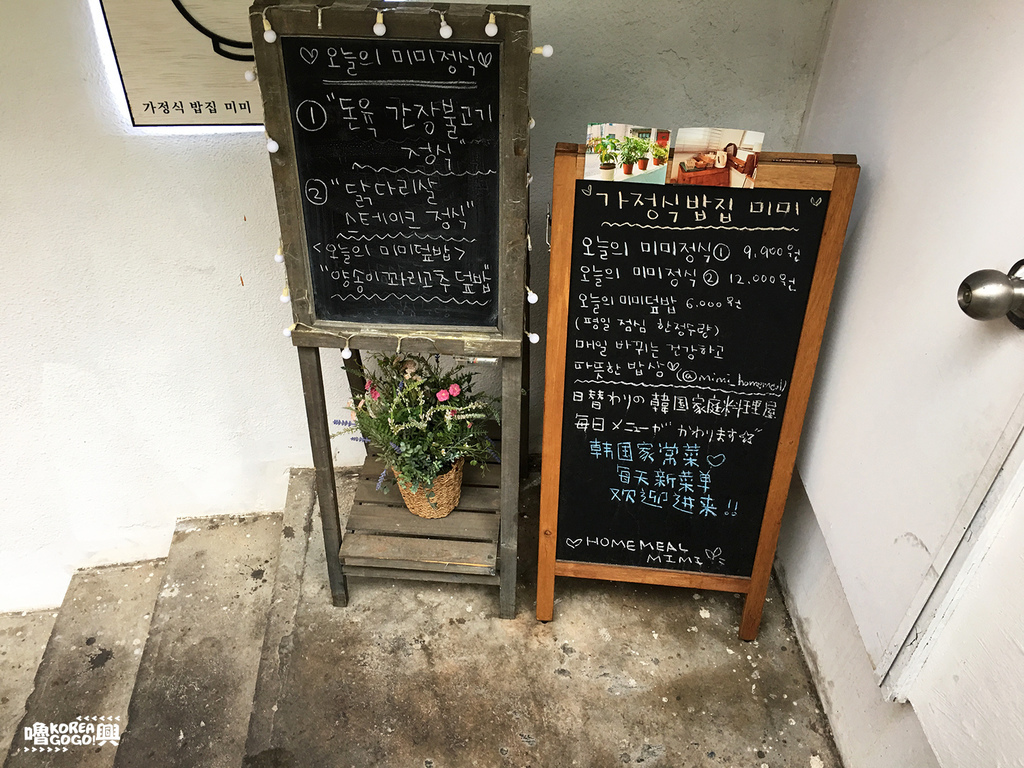 가정식 밥집 미미
♡오늘의 미미정식♡
① "돈육 간장불고기
정식"
② "닭다리살
스테이크 정식"
<오늘의 미미덮밥>
"양송이꽈리고추 덮밥"
♡가정식밥집 미미♡
오늘의 미미정식① 9,900원
오늘의 미미정식② 12,000원
오늘의 미미덮밥 6,000원
(평일 점심 한정수량)
매일 바뀌는 건강하고
따뜻한 밥상♡(@mimi_homemeal)
日替わりの韓国家庭料理屋
毎日 メニューが かわります☆
韩国家常菜♡
每天新菜单
欢迎进来!!
♡HOMEMEAL
MIMI
嚕KOREA GOGO!興